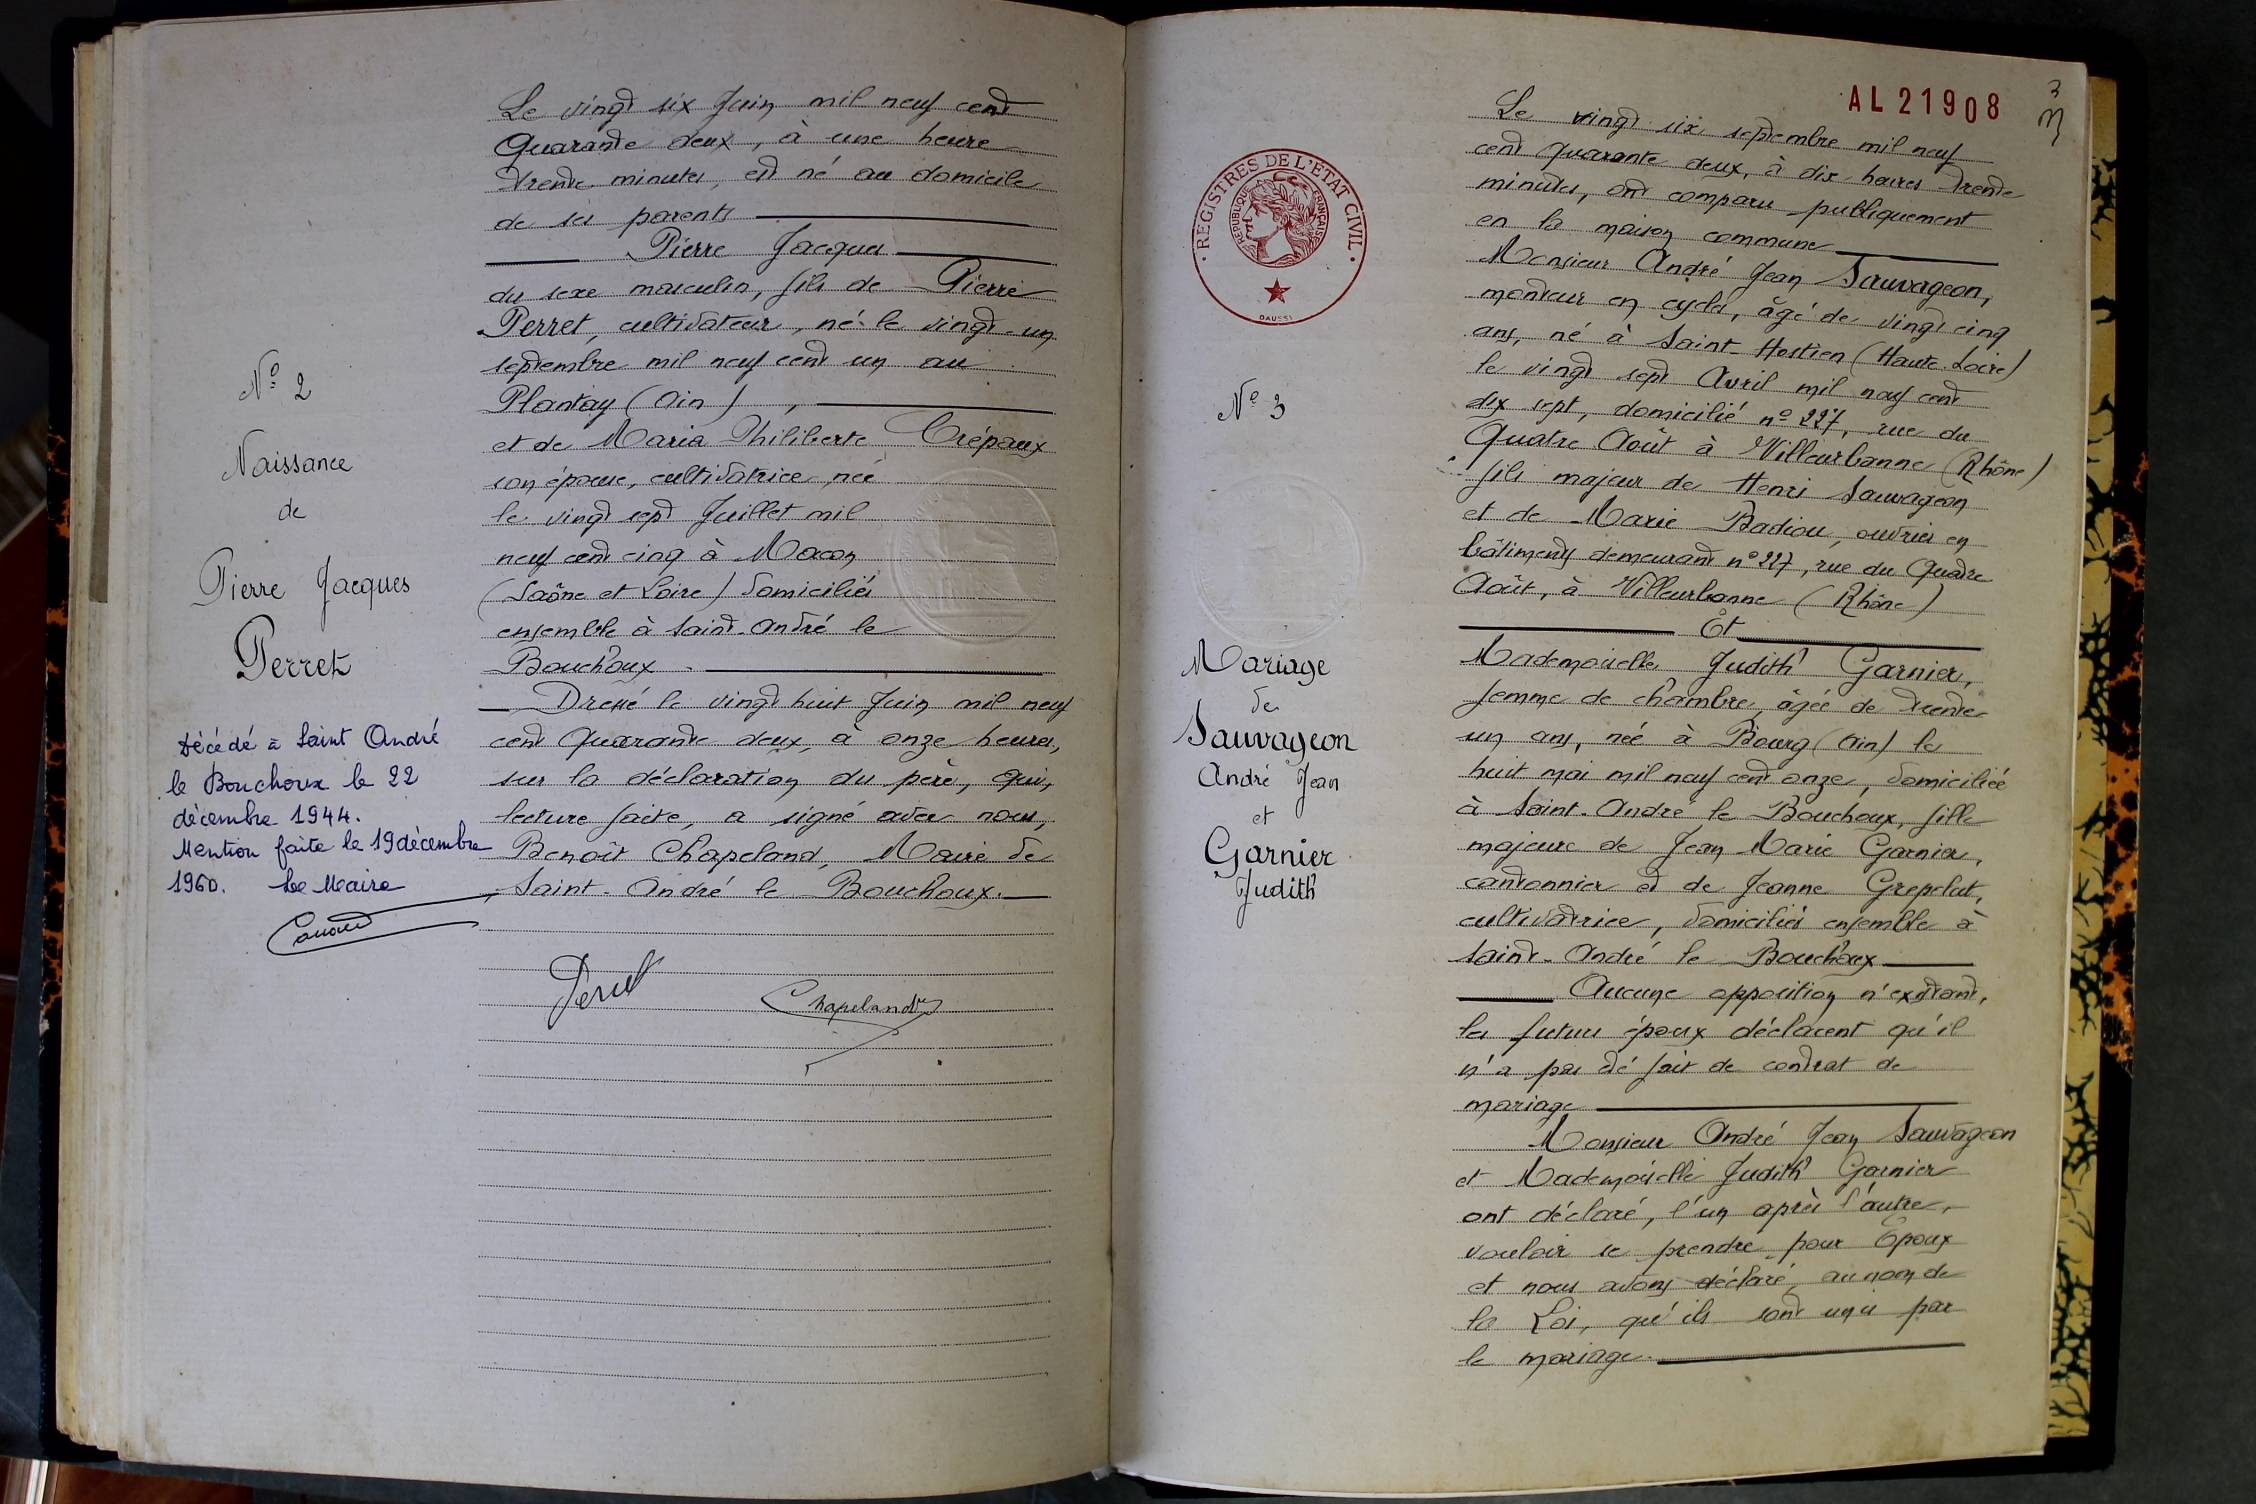 N° 2
Naissance
de
Pierre Jacques
Perret
Décédé à Saint André
le Bouchoux le 22
décembre 1944.
Mention faite le 19 décembre
1960. Le Maire
Le vingt six Juin mil neuf cent
Quarante deux, à une heure
trente minutes, est né au domicile
de ses parents
Pierre Jacques
du sexe masculin, fils de Pierre
Perret, cultivateur, né le vingt-un
septembre mil neuf cent un au
Plantay (Ain),
et de Maria Philiberte Crépaux
son épouse, cultivatrice, née
le vingt sept Juillet mil
neuf cent cinq à Macon
(Saône et Loire) domiciliés
ensemble à Saint-André le
Bouchoux.
Dressé le vingt huit Juin mil neuf
cent Quarante deux, à onze heures,
sur la déclaration du père, qui,
lecture faite, a signé avec nous,
Benoît Chapeland, Maire de
Saint-André le Bouchoux.
Perret
Chapeland
AL 21908
3
REGISTRES DE L'ÉTAT CIVIL
RÉPUBLIQUE FRANÇAISE
DAUSSI
N° 3
Mariage
de
Sauvageon
André Jean
et
Garnier
Judith
Le vingt six septembre mil neuf
cent quarante deux, à dix heures trente
minutes, ont comparu publiquement
en la maison commune
Monsieur André Jean Sauvageon,
monteur en cycles, âgé de vingt cinq
ans, né à Saint-Hostien (Haute-Loire)
le vingt sept Avril mil neuf cent
dix sept, domicilié n° 227, rue du
Quatre Août à Villeurbanne (Rhône)
fils majeur de Henri Sauvageon
et de Marie Badiou, ouvrier en
bâtiments demeurant n° 227, rue du Quatre
Août, à Villeurbanne (Rhône)
Et
Mademoiselle Judith Garnier,
femme de chambre, âgée de trente
un ans, née à Bourg (Ain) le
huit mai mil neuf cent onze, domiciliée
à Saint-André le Bouchoux, fille
majeure de Jean Marie Garnier,
cantonnier et de Jeanne Grepelut,
cultivatrice, domiciliés ensemble à
Saint-André le Bouchoux
Aucune opposition n'existant,
les futurs époux déclarent qu'il
n'a pas été fait de contrat de
mariage
Monsieur André Jean Sauvageon
et Mademoiselle Judith Garnier
ont déclaré, l'un après l'autre,
vouloir se prendre pour Epoux
et nous avons déclaré, au nom de
la Loi, qu'ils sont unis par
le mariage.